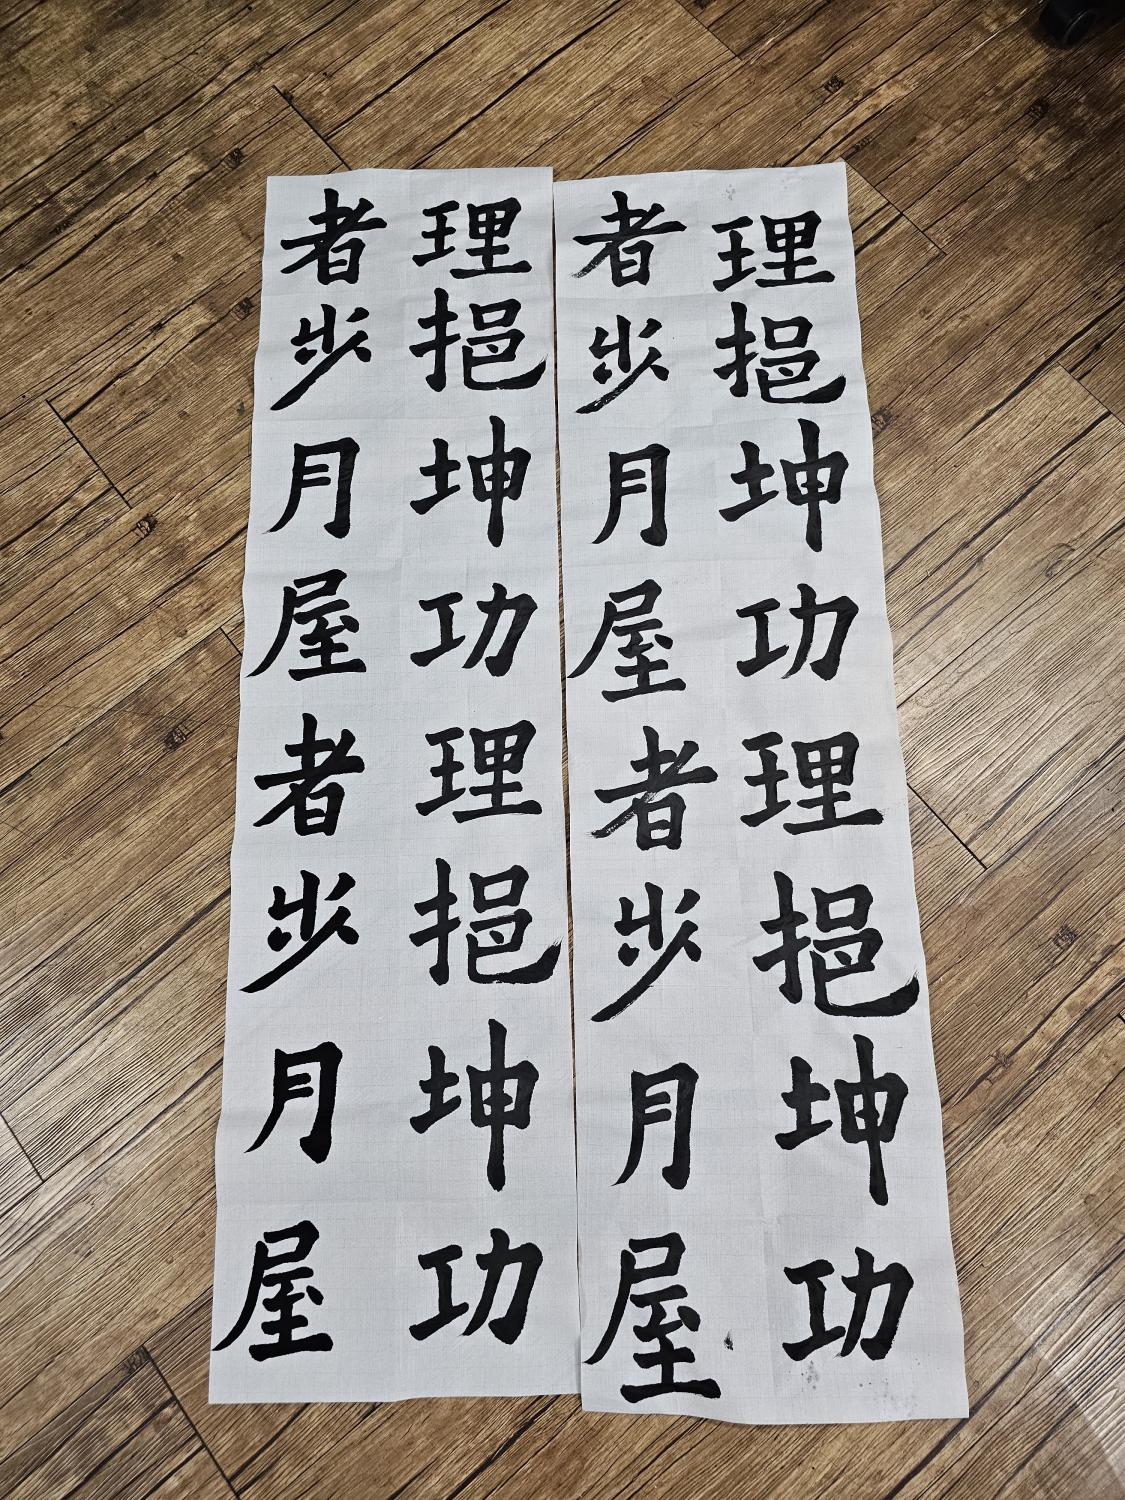 理挹坤功理挹坤功
者步月屋者步月屋
理挹坤功理挹坤功
者步月屋者步月屋